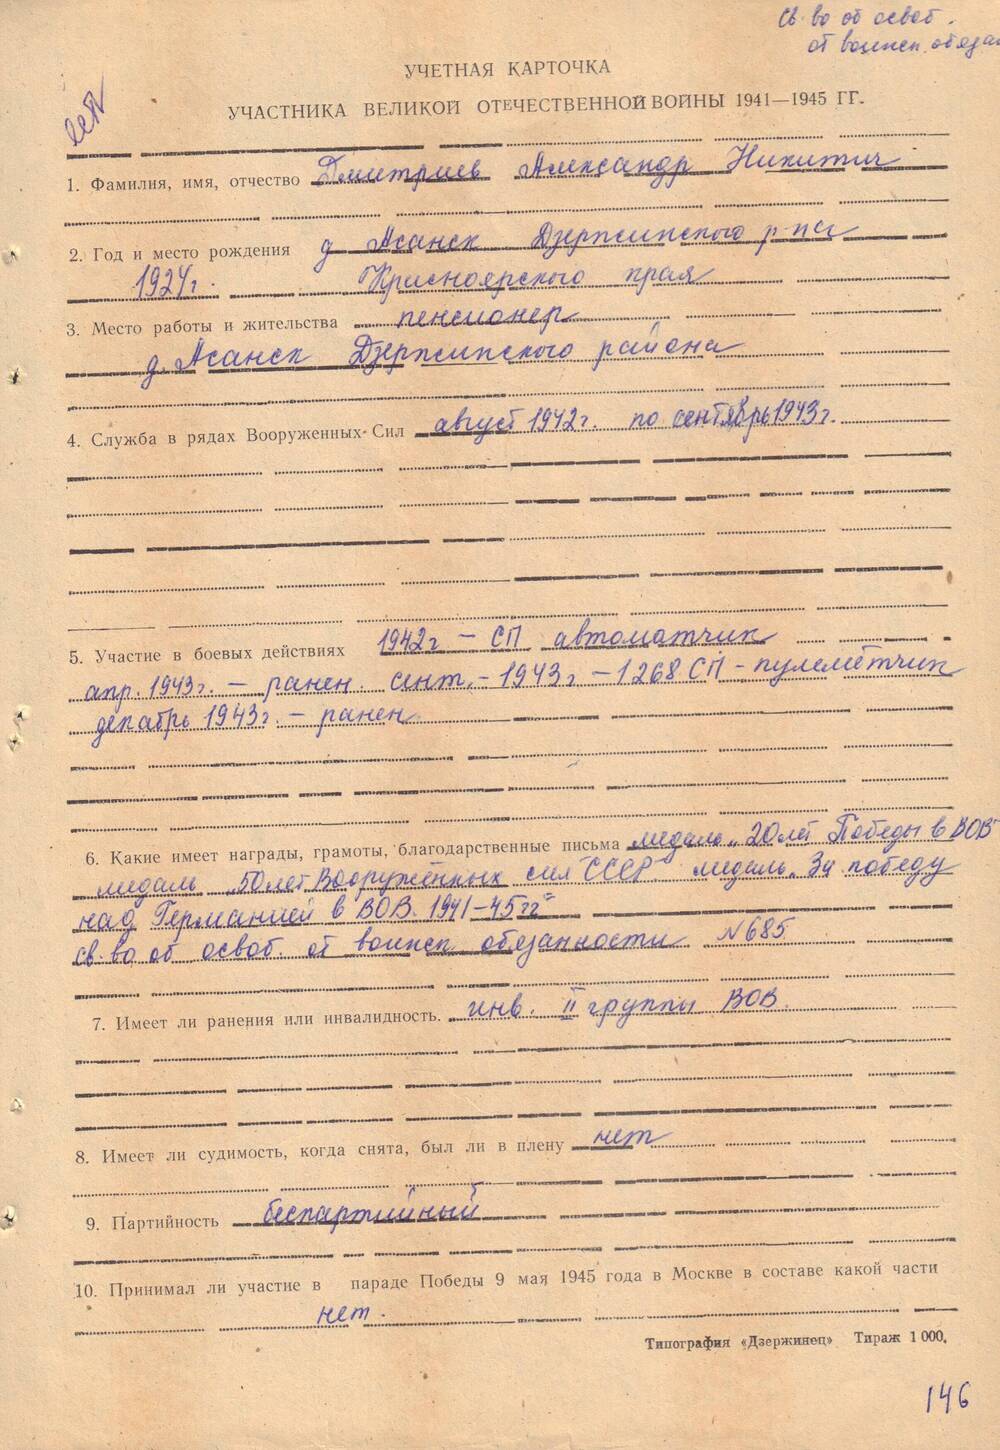 Св-во об освоб.
от воинск. обязан
УЧЕТНАЯ КАРТОЧКА
УЧАСТНИКА ВЕЛИКОЙ ОТЕЧЕСТВЕННОЙ ВОЙНЫ 1941—1945 ГГ.
1. Фамилия, имя, отчество Дмитриев Александр Никитич
2. Год и место рождения д Асанск Дзержинского р-на
1924г. Красноярского края
3. Место работы и жительства пенсионер
д. Асанск Дзержинского района
4. Служба в рядах Вооруженных Сил август 1942г. по сентябрь 1943г.
5. Участие в боевых действиях 1942г – СП автоматчик
апр. 1943г. – ранен. сент. – 1943г – 1268 СП – пулемётчик
декабрь 1943г. – ранен
6. Какие имеет награды, грамоты, благодарственные письма медаль „20 лет Победы в ВОВ"
медаль „50 лет Вооружённых сил СССР" медаль „За победу
над Германией в ВОВ. 1941–45гг"
св-во об освоб. от воинск. обязанности N 685
7. Имеет ли ранения или инвалидность. инв. II группы ВОВ.
8. Имеет ли судимость, когда снята, был ли в плену нет
9. Партийность беспартийный
10. Принимал ли участие в параде Победы 9 мая 1945 года в Москве в составе какой части
нет.
Типография «Дзержинец» Тираж 1 000.
146